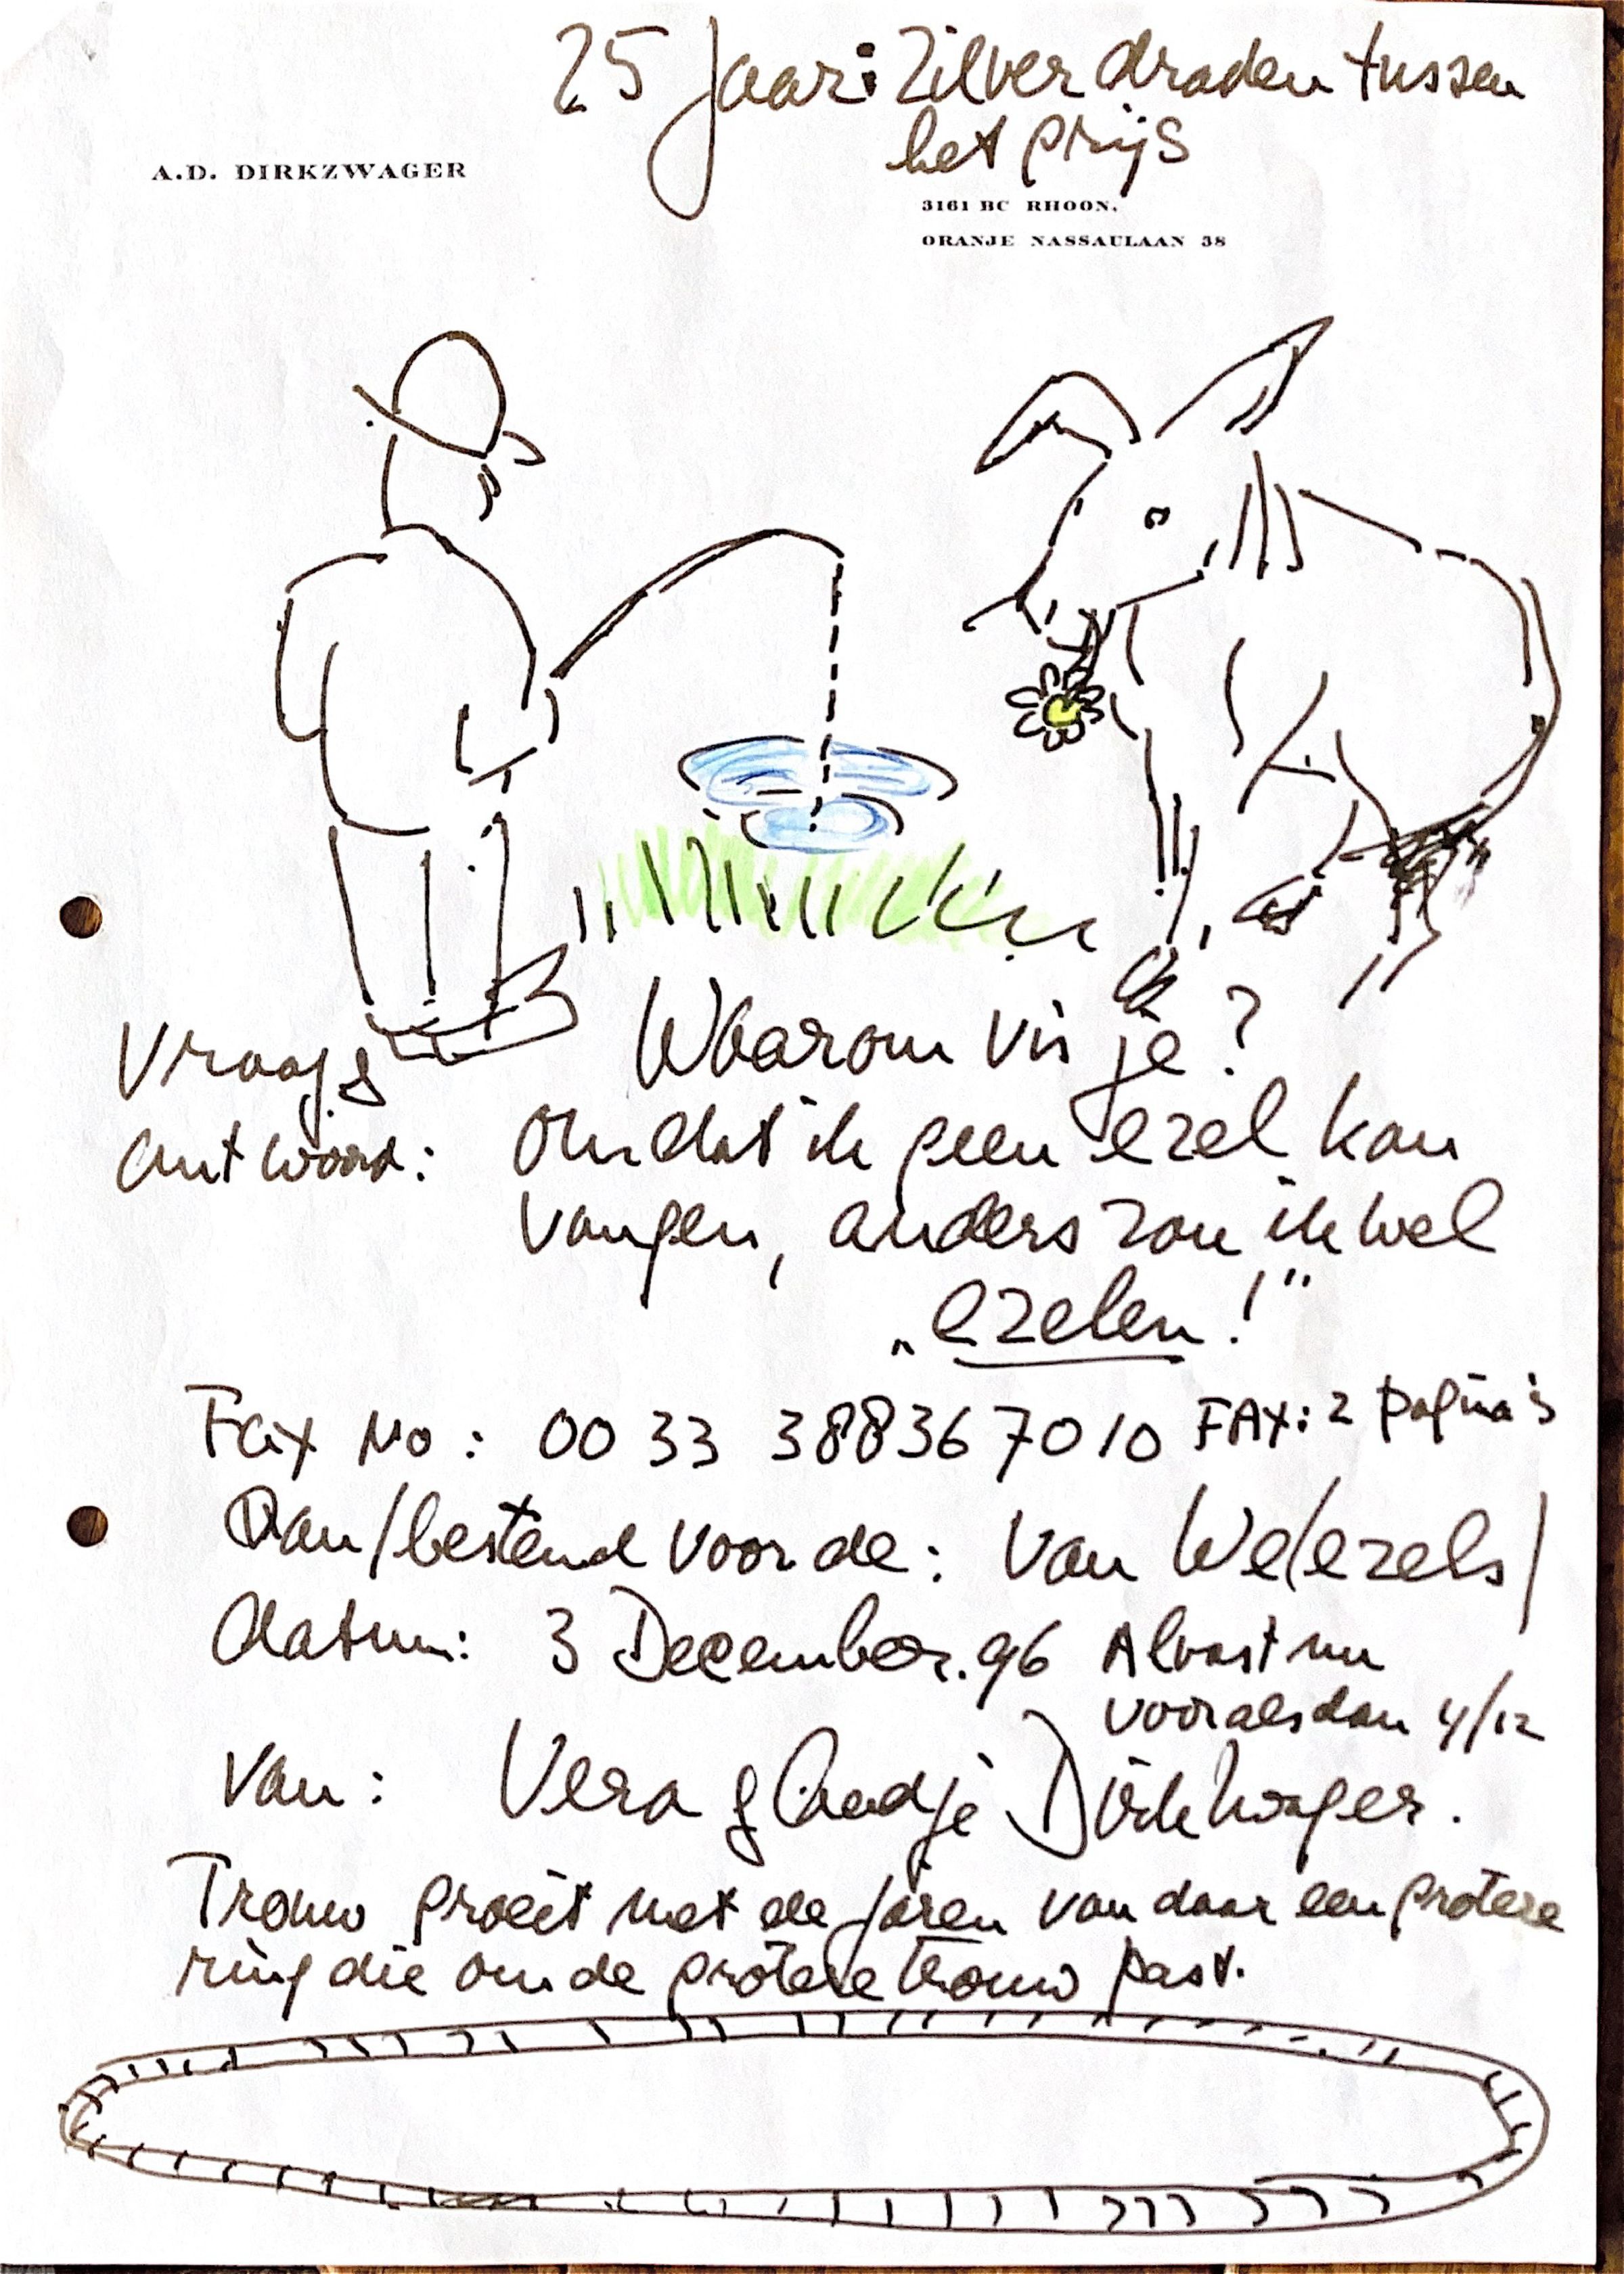 25 jaar: Zilverdraden tussen
het grijs
A.D. DIRKZWAGER
3161 BC RHOON,
ORANJE NASSAULAAN 38
Vraag: Waarom vis je?
antwoord: Omdat ik geen ezel kan
vangen, anders zou ik wel
„ezelen!"
Fax No: 00 33 388367010 FAX: 2 pagina's
Aan/bestemd voor de: Van We/ezels/
datum: 3 December. 96 Alvast nu
voor alsdan 4/12
Van: Vera & Aadje Dirkzwager.
Trouw groeit met de jaren van daar een grotere
ring die om de grotere trouw past.